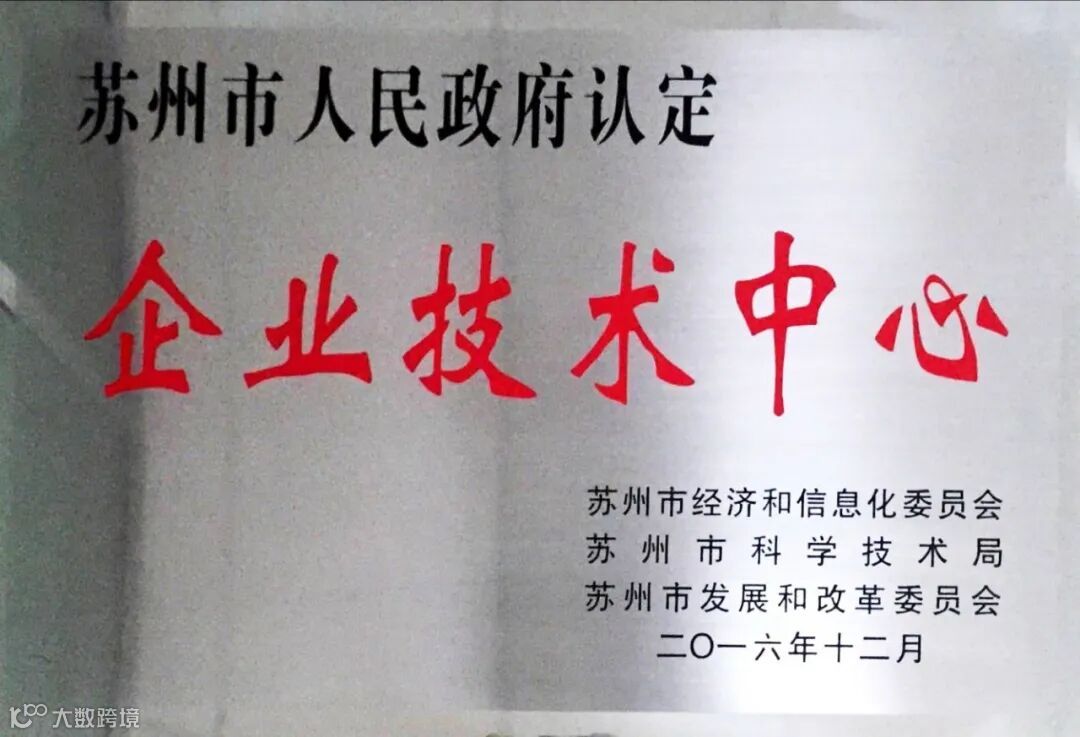 苏州市人民政府认定
企业技术中心
苏州市经济和信息化委员会
苏州市科学技术局
苏州市发展和改革委员会
二〇一六年十二月
大数跨境